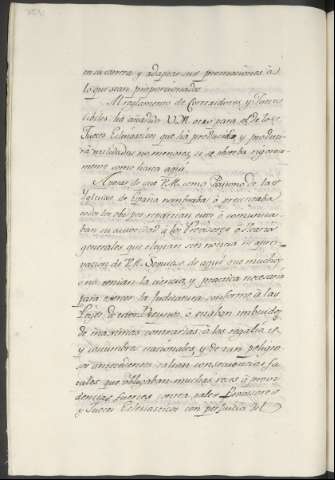 en su carrera y adaptar sus pretensiones à
lo que sean proporcionado.
Al reglamento de Corregidores y
ha añadido V.M. otro para el de los
Jueces Eclesiasticos que ha producido, y produci-
rá utilidades no menores si se observa rigorosa-
mente como hasta aqui.
A pesar de que V.M. como Patrono de las
Yglesias de España nombraba ó presentaba
todos los obispos repartian estos ó comunica-
ban su autoridad à los Provisores ó Vicarios
generales que elegian sin noticia ni apro-
vacion de V.M. Seguiase de aqui que muchos
no tenian la ciencia y practica necesaria
para exercer la Judicatura conforme à las
Leyes de estos Reynos, ó estaban imbuidos
de maximas contrarias à las regalias
y costumbres nacionales, y de tan peligro-
sos antecedentes salian consecuencias fa-
tales que obligaban muchas veces à provi-
dencias fuertes contra tales Provisores
y Jueces Eclesiasticos con perjuicio del